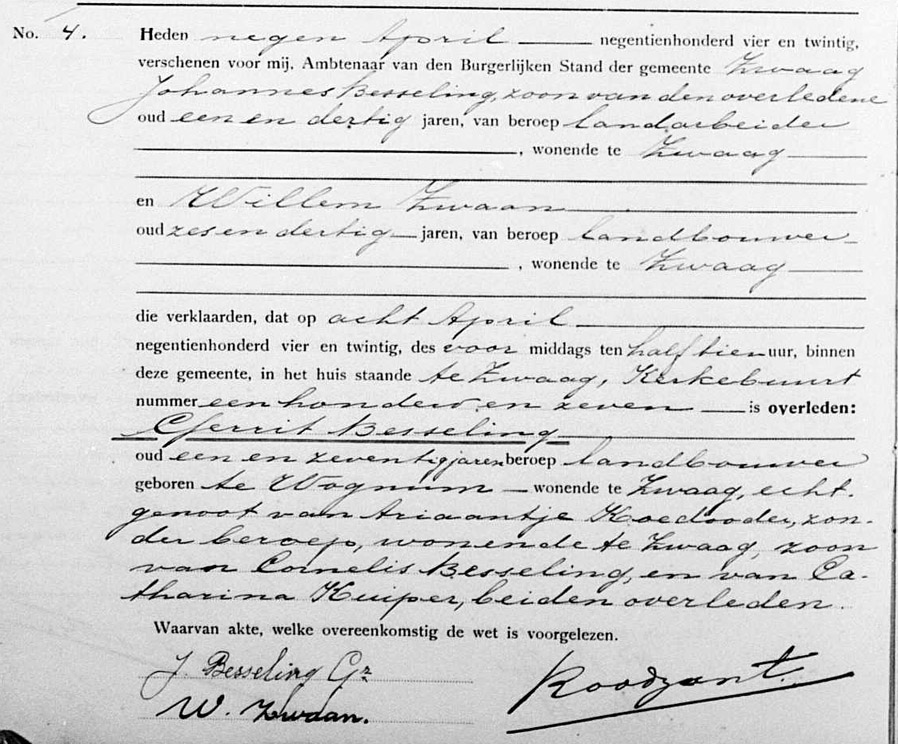 No. 4. Heden negen April negentienhonderd vier en twintig,
verschenen voor mij, Ambtenaar van den Burgerlijken Stand der gemeente Zwaag
Johannes Besseling, zoon van den overledene
oud een en dertig jaren, van beroep landarbeider
, wonende te Zwaag
en Willem Zwaan
oud zes en dertig jaren, van beroep landbouwer
, wonende te Zwaag
die verklaarden, dat op acht April
negentienhonderd vier en twintig, des voor middags ten half tien uur, binnen
deze gemeente, in het huis staande te Zwaag, Kerkebuurt
nummer een honderd en zeven is overleden:
Gerrit Besseling
oud een en zeventig jaren beroep landbouwer
geboren te Wognum wonende te Zwaag, echt-
genoot van Ariaantje Koedooder, zon-
der beroep, wonende te Zwaag, zoon
van Cornelis Besseling, en van Ca-
tharina Kuiper, beiden overleden.
Waarvan akte, welke overeenkomstig de wet is voorgelezen.
J. Besseling Gz
W. Zwaan.
Roodzant.